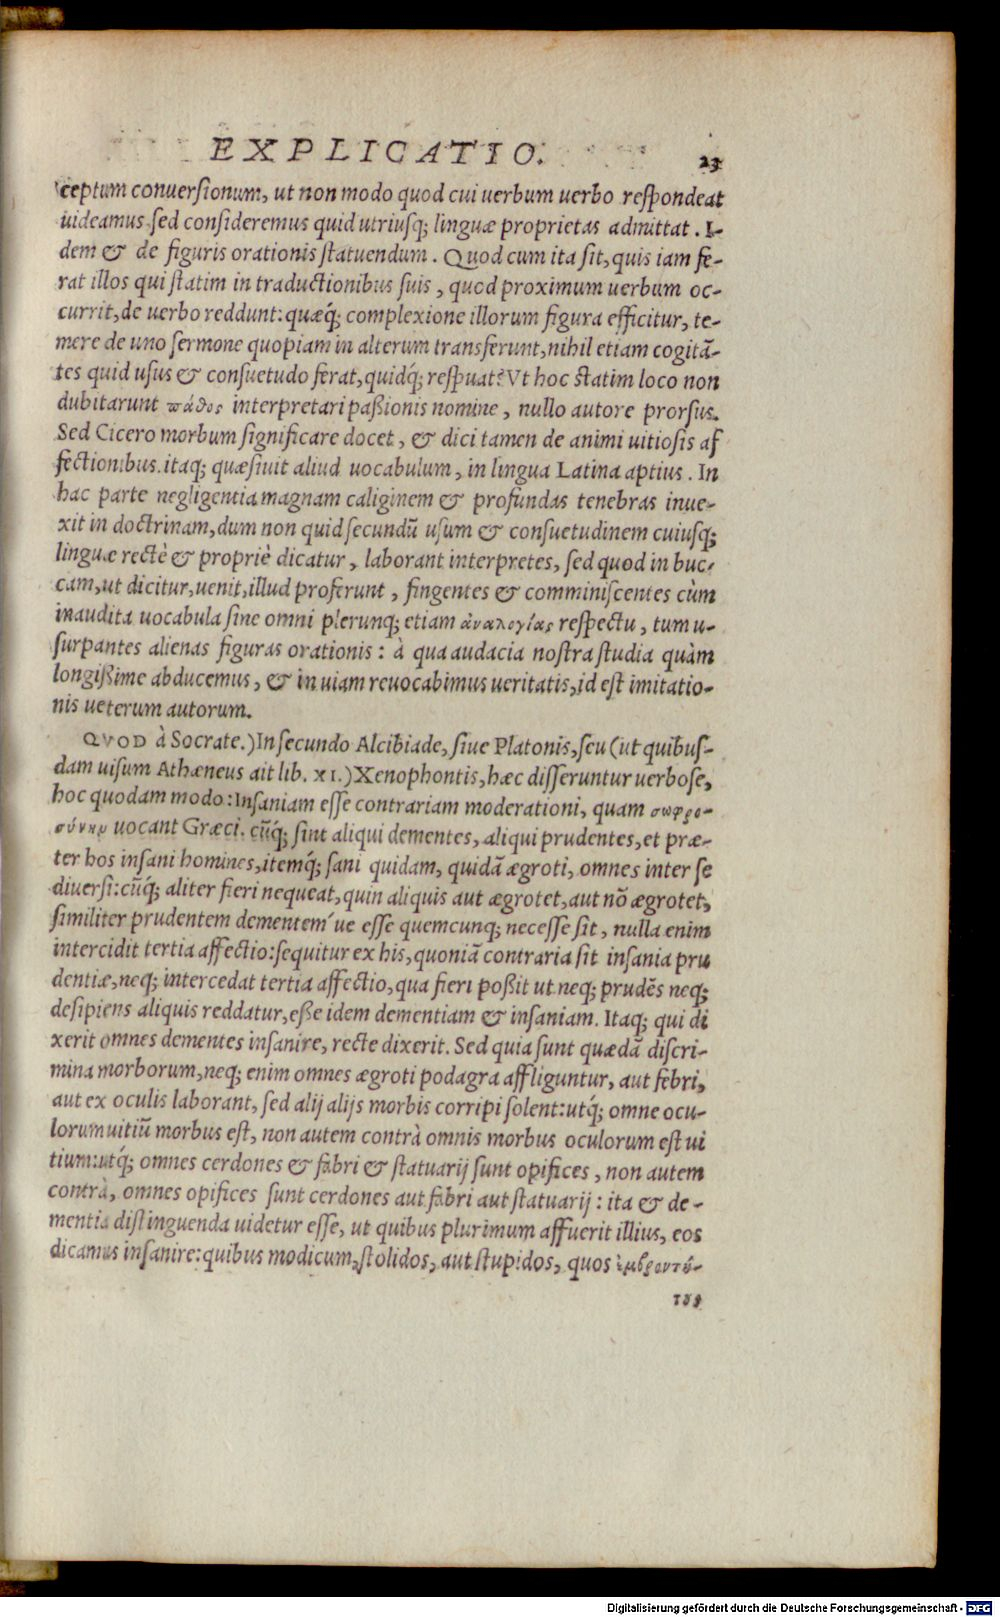 EXPLICATIO. 23
ceptum conuersionum, ut non modo quod cui uerbum uerbo respondeat
uideamus sed consideremus quid utriusq; linguæ proprietas admittat. I-
dem & de figuris orationis statuendum. Quod cum ita sit, quis iam fe-
rat illos qui statim in traductionibus suis, quod proximum uerbum oc-
currit, de uerbo reddunt: quæq́; complexione illorum figura efficitur, te-
mere de uno sermone quopiam in alterum transferunt, nihil etiam cogitã-
tes quid usus & consuetudo ferat, quidq́; respuat? Vt hoc statim loco non
dubitarunt πάθος interpretari paßionis nomine, nullo autore prorsus.
Sed Cicero morbum significare docet, & dici tamen de animi uitiosis af
fectionibus. itaq; quæsiuit aliud uocabulum, in lingua Latina aptius. In
hac parte negligentia magnam caliginem & profundas tenebras inue-
xit in doctrinam, dum non quid secundũ usum & consuetudinem cuiusq;
linguæ rectè & propriè dicatur, laborant interpretes, sed quod in buc-
cam, ut dicitur, uenit, illud proferunt, fingentes & comminiscentes cùm
inaudita uocabula sine omni plerunq; etiam ἀναλογίας respectu, tum u-
surpantes alienas figuras orationis: à qua audacia nostra studia quàm
longißime abducemus, & in uiam reuocabimus ueritatis, id est imitatio-
nis ueterum autorum.
QVOD à Socrate.) In secundo Alcibiade, siue Platonis, seu (ut quibus-
dam uisum Athæneus ait lib. XI.) Xenophontis, hæc disseruntur uerbose,
hoc quodam modo: Insaniam esse contrariam moderationi, quam σωφρο-
σύνην uocant Græci. cũq́; sint aliqui dementes, aliqui prudentes, et præ-
ter hos insani homines, itemq́; sani quidam, quidã ægroti, omnes inter se
diuersi: cũq́; aliter fieri nequeat, quin aliquis aut ægrotet, aut nõ ægrotet,
similiter prudentem dementem´ue esse quemcunq; necesse sit, nulla enim
intercidit tertia affectio: sequitur ex his, quoniã contraria sit insania pru
dentiæ, neq; intercedat tertia affectio, qua fieri poßit ut neq; prudẽs neq;
desipiens aliquis reddatur, eße idem dementiam & insaniam. Itaq; qui di
xerit omnes dementes insanire, recte dixerit. Sed quia sunt quædã discri-
mina morborum, neq; enim omnes ægroti podagra affliguntur, aut febri,
aut ex oculis laborant, sed alij alijs morbis corripi solent: utq́; omne ocu-
lorum uitiũ morbus est, non autem contrà omnis morbus oculorum est ui
tium: utq́; omnes cerdones & fabri & statuarij sunt opifices, non autem
contrà, omnes opifices sunt cerdones aut fabri aut statuarij: ita & de-
mentia distinguenda uidetur esse, ut quibus plurimum affuerit illius, eos
dicamus insanire: quibus modicum, stolidos, aut stupidos, quos ἐμβροντή-
τους
Digitalisierung gefördert durch die Deutsche Forschungsgemeinschaft - DFG